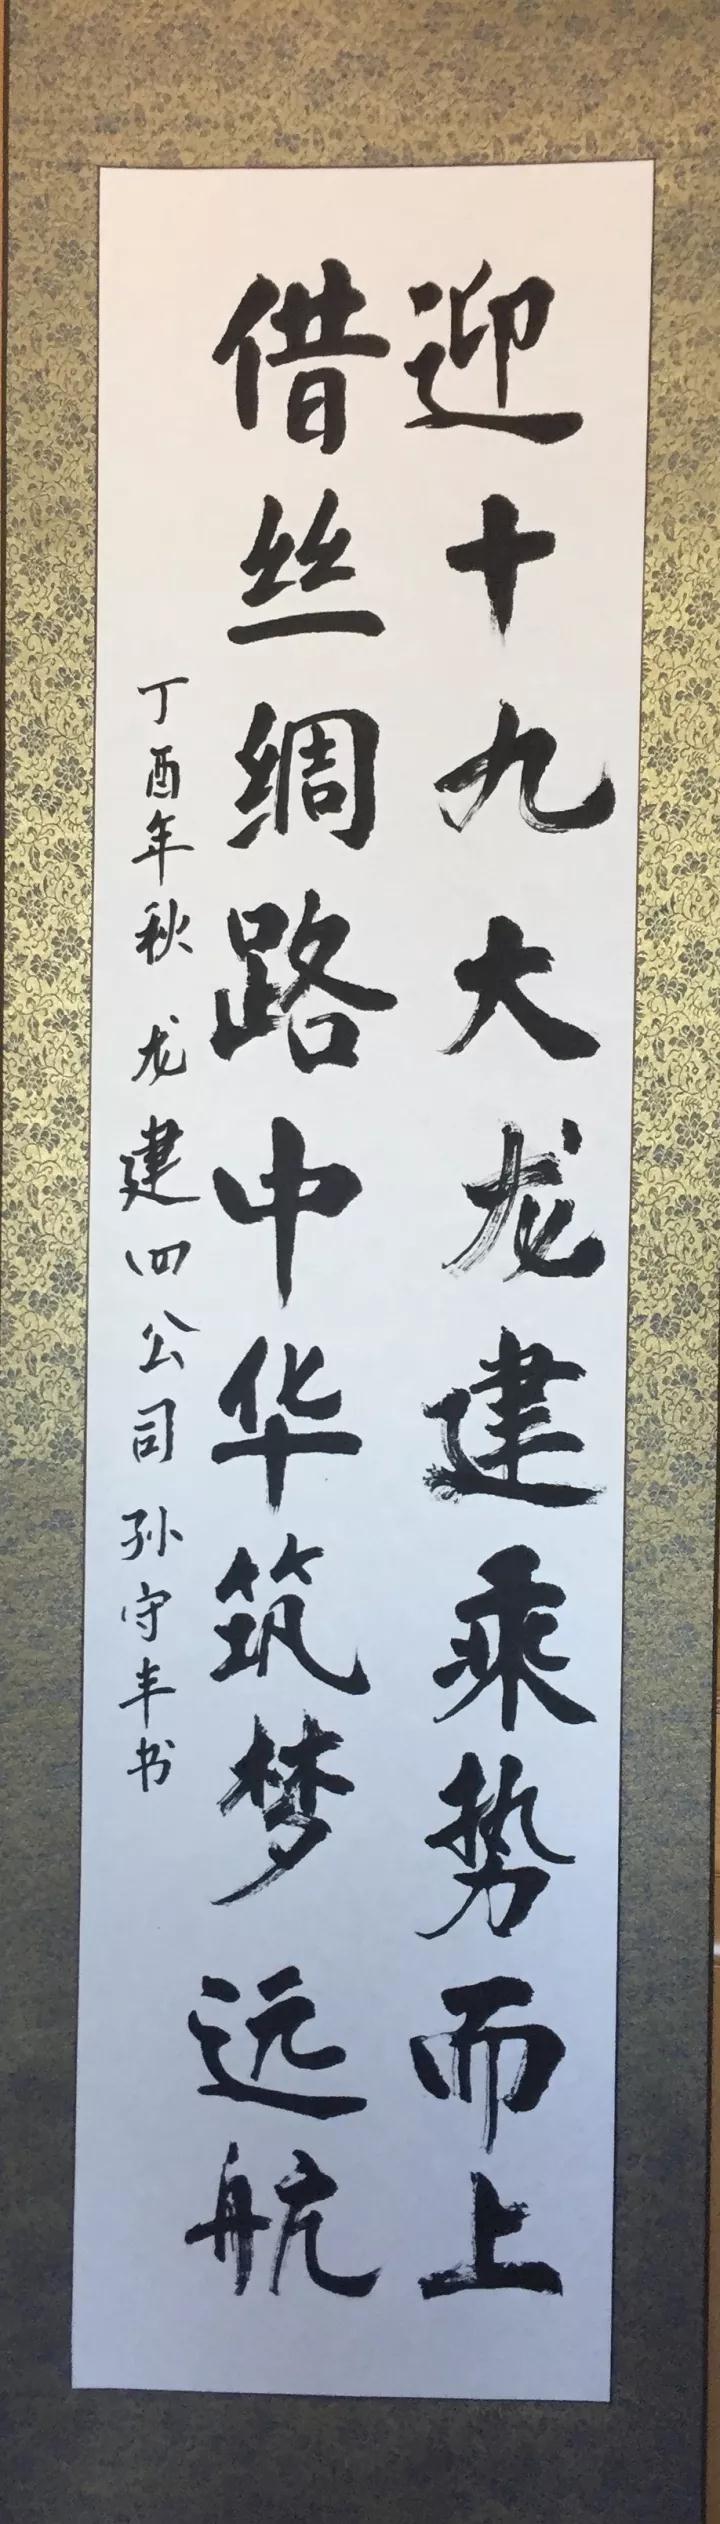 迎十九大龙建乘势而上
借丝绸路中华筑梦远航
丁酉年秋 龙建四公司 孙守丰书